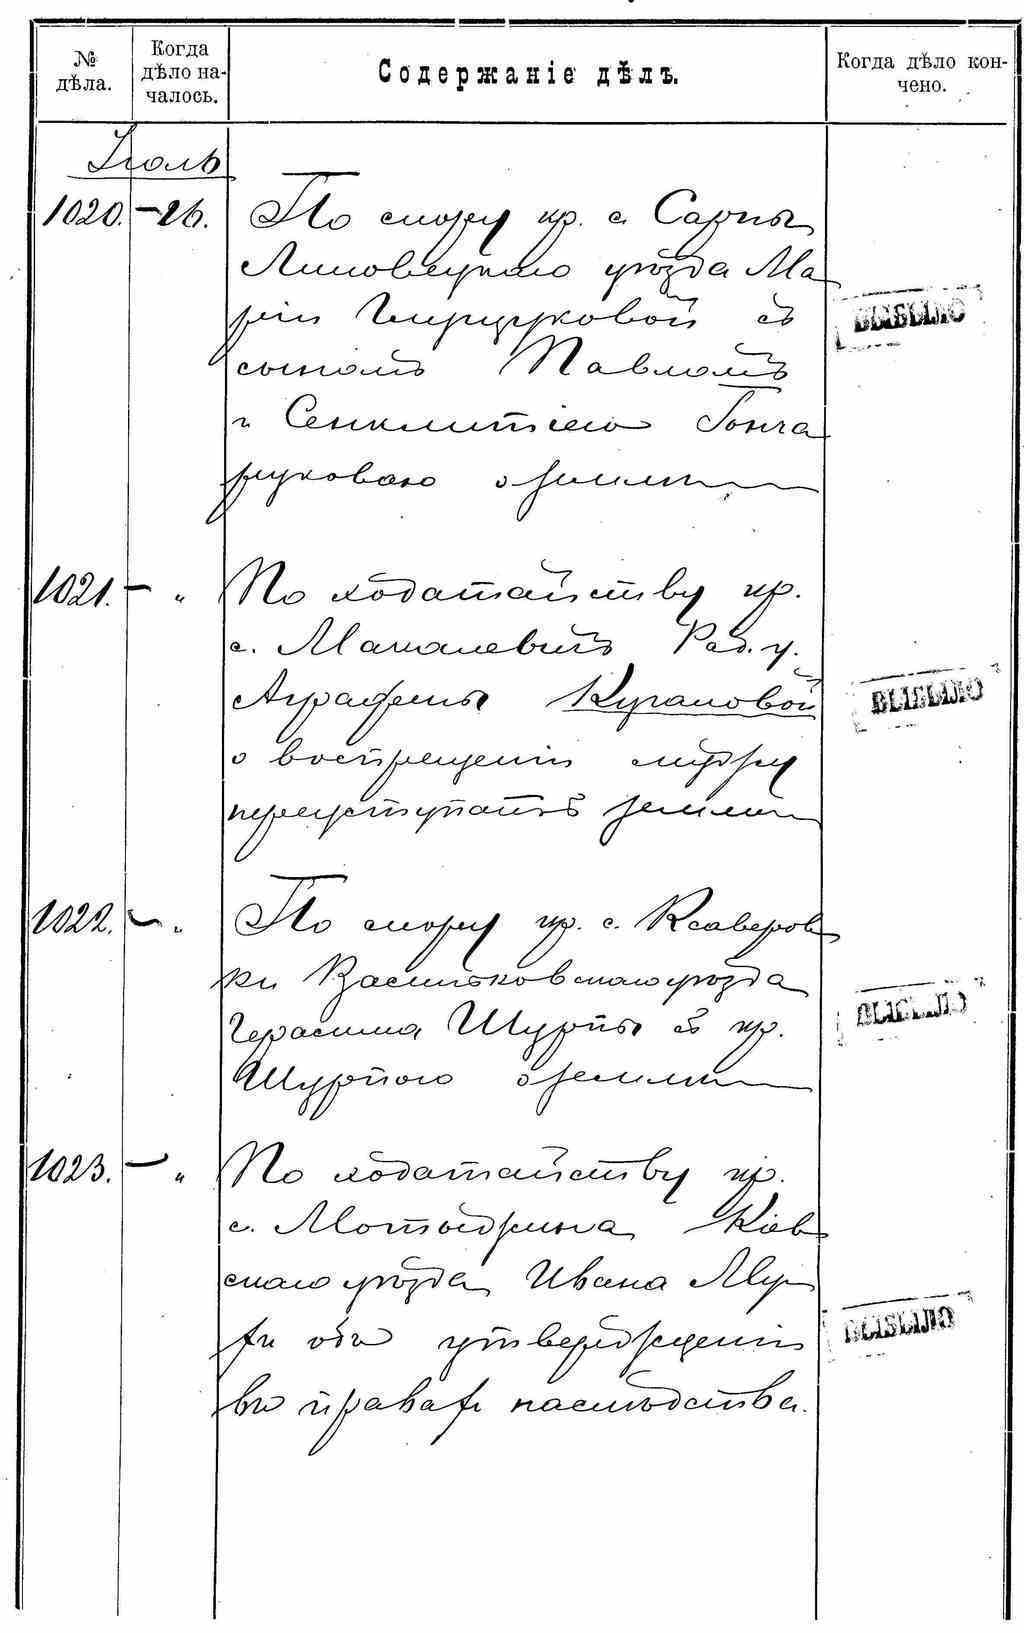 № дѣла.
Когда дѣло на-
чалось.
Содержаніе дѣлъ.
Когда дѣло кон-
чено.
Іюль
1020. — 26.
По спору кр. с. Сарны
Липовецкаго уѣзда Ма
ріи съ
сыномъ Павломъ
и Сенклитіею Гонча
руковою о землѣ
ВЫБЫЛО
1021. — „
По ходатайству кр.
с. Макалевичъ Рад. у.
Аграфены
о воспрещеніи мужу
переуступать землю
ВЫБЫЛО
1022. — „
По спору кр. с. Ксаверов
ки Васильковскаго уѣзда
Герасима Щурпы съ кр.
Щурпою о землѣ
ВЫБЫЛО
1023. — „
По ходатайству кр.
с. Мотыжина Кіев
скаго уѣзда Ивана
объ утвержденіи
въ правах наслѣдства.
ВЫБЫЛО